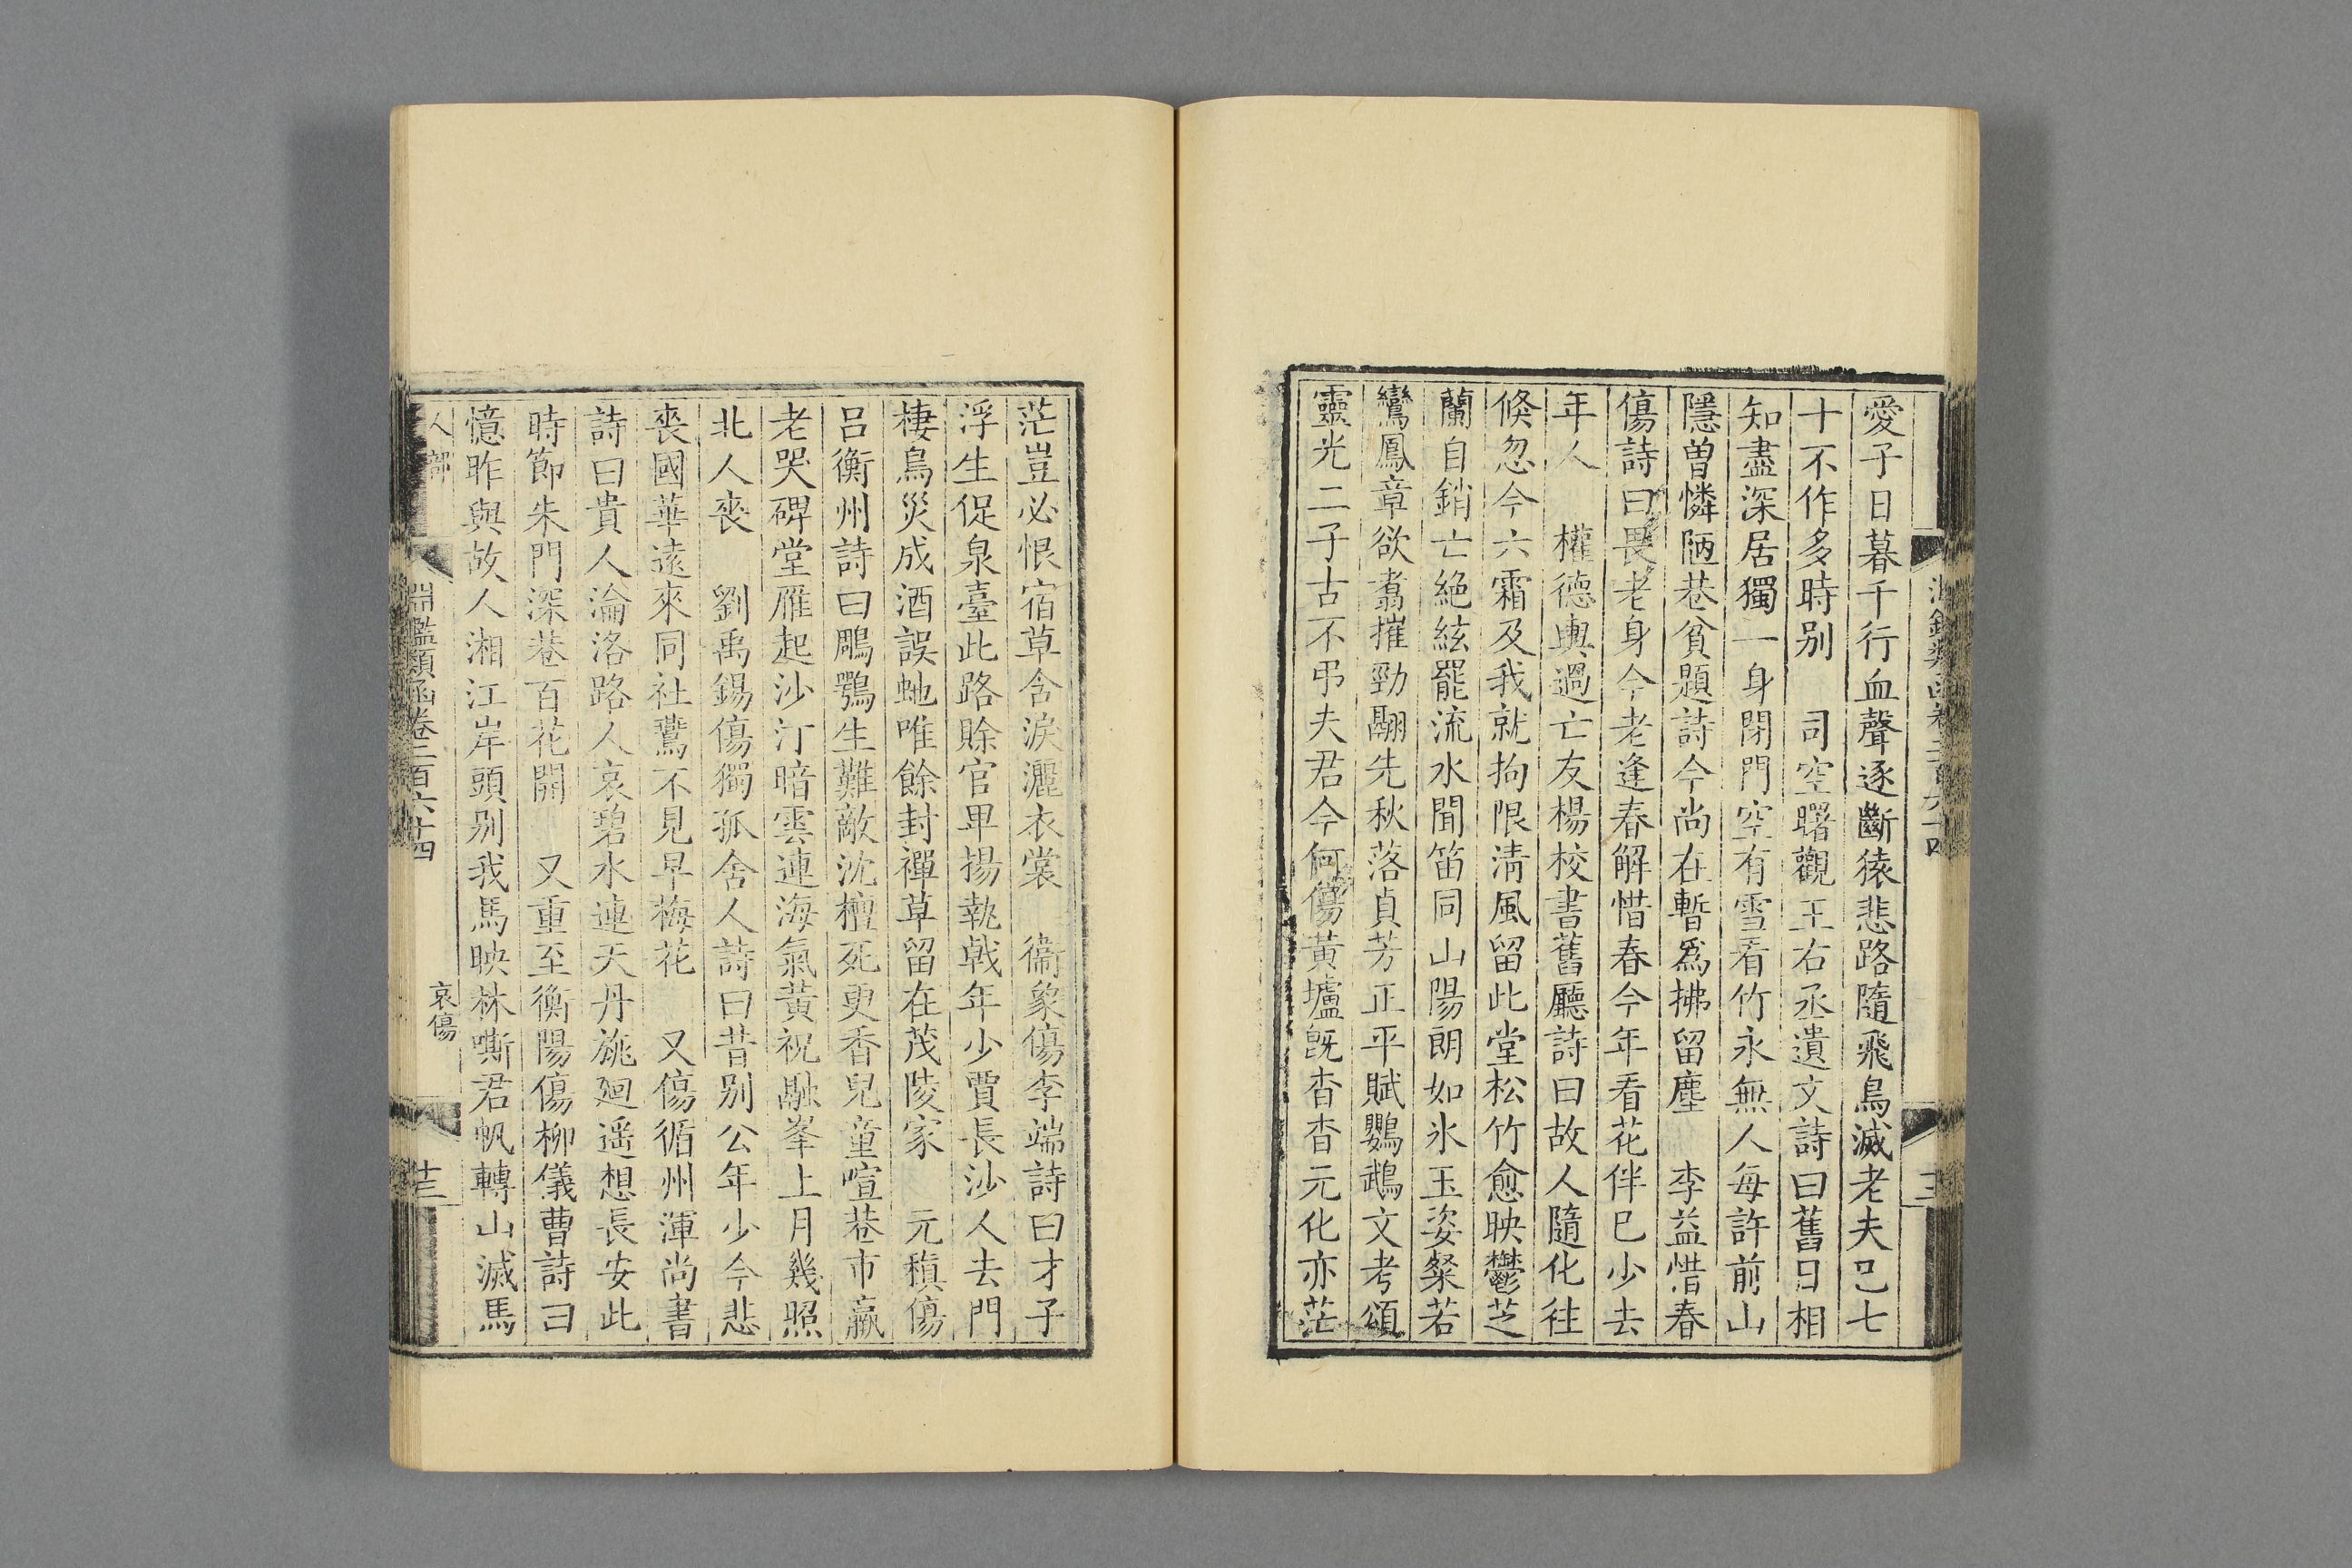 愛子日暮千行血聲逐斷猿悲路隨飛鳥滅老夫已七
十不作多時别　司空曙觀王右丞遺文詩曰舊日相
知盡深居獨一身閉門空有雪看竹永無人每許前山
隱曾憐陋巷貧題詩今尚在暫爲拂留塵　李益惜春
傷詩曰畏老身今老逢春解惜春今年看花伴已少去
年人　權德輿過亡友楊校書舊廳詩曰故人隨化往
倐忽今六霜及我就拘限清風留此堂松竹愈映鬱芝
蘭自銷亡絶絃罷流水聞笛同山陽朗如氷玉姿粲若
鸞鳳章欲翥摧勁翮先秋落貞芳正平賦鸚鵡文考頌
靈光二子古不弔夫君今何傷黃壚旣杳杳元化亦茫
茫豈必恨宿草含淚灑衣裳　衞象傷李端詩曰才子
浮生促泉臺此路賒官卑揚執戟年少賈長沙人去門
棲鳥災成酒誤虵唯餘封禪草留在茂陵家　元稹傷
呂衡州詩曰鵰鶚生難敵沈檀死更香兒童喧巷市羸
老哭碑堂雁起沙汀暗雲連海氣黃祝融峯上月幾照
北人喪　劉禹錫傷獨孤舍人詩曰昔别公年少今悲
喪國華遠來同社鷰不見早梅花　又傷循州渾尚書
詩曰貴人淪洛路人哀碧水連天丹旐廻遥想長安此
時節朱門深巷百花開　又重至衡陽傷柳儀曹詩曰
憶昨與故人湘江岸頭别我馬映林嘶君帆轉山滅馬
人部
淵鑑類函卷二百六十四
哀傷
十三